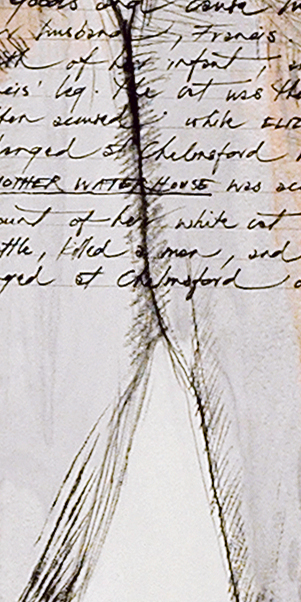 goods and
husband, Francis.
of her infant,
leg. The cat was
accused white
hanged at Chelmsford
MOTHER WATERHOUSE was ac
ount of her white cat
ttle, killed a man, and
ged at Chelmsford